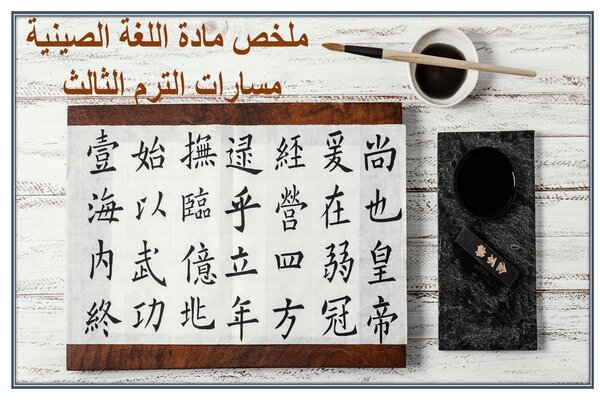 ملخص مادة اللغة الصينية
مسارات الترم الثالث
尚也皇帝
爰在弱冠
經營四方
逮乎立年
撫臨億兆
始以武功
壹海内終